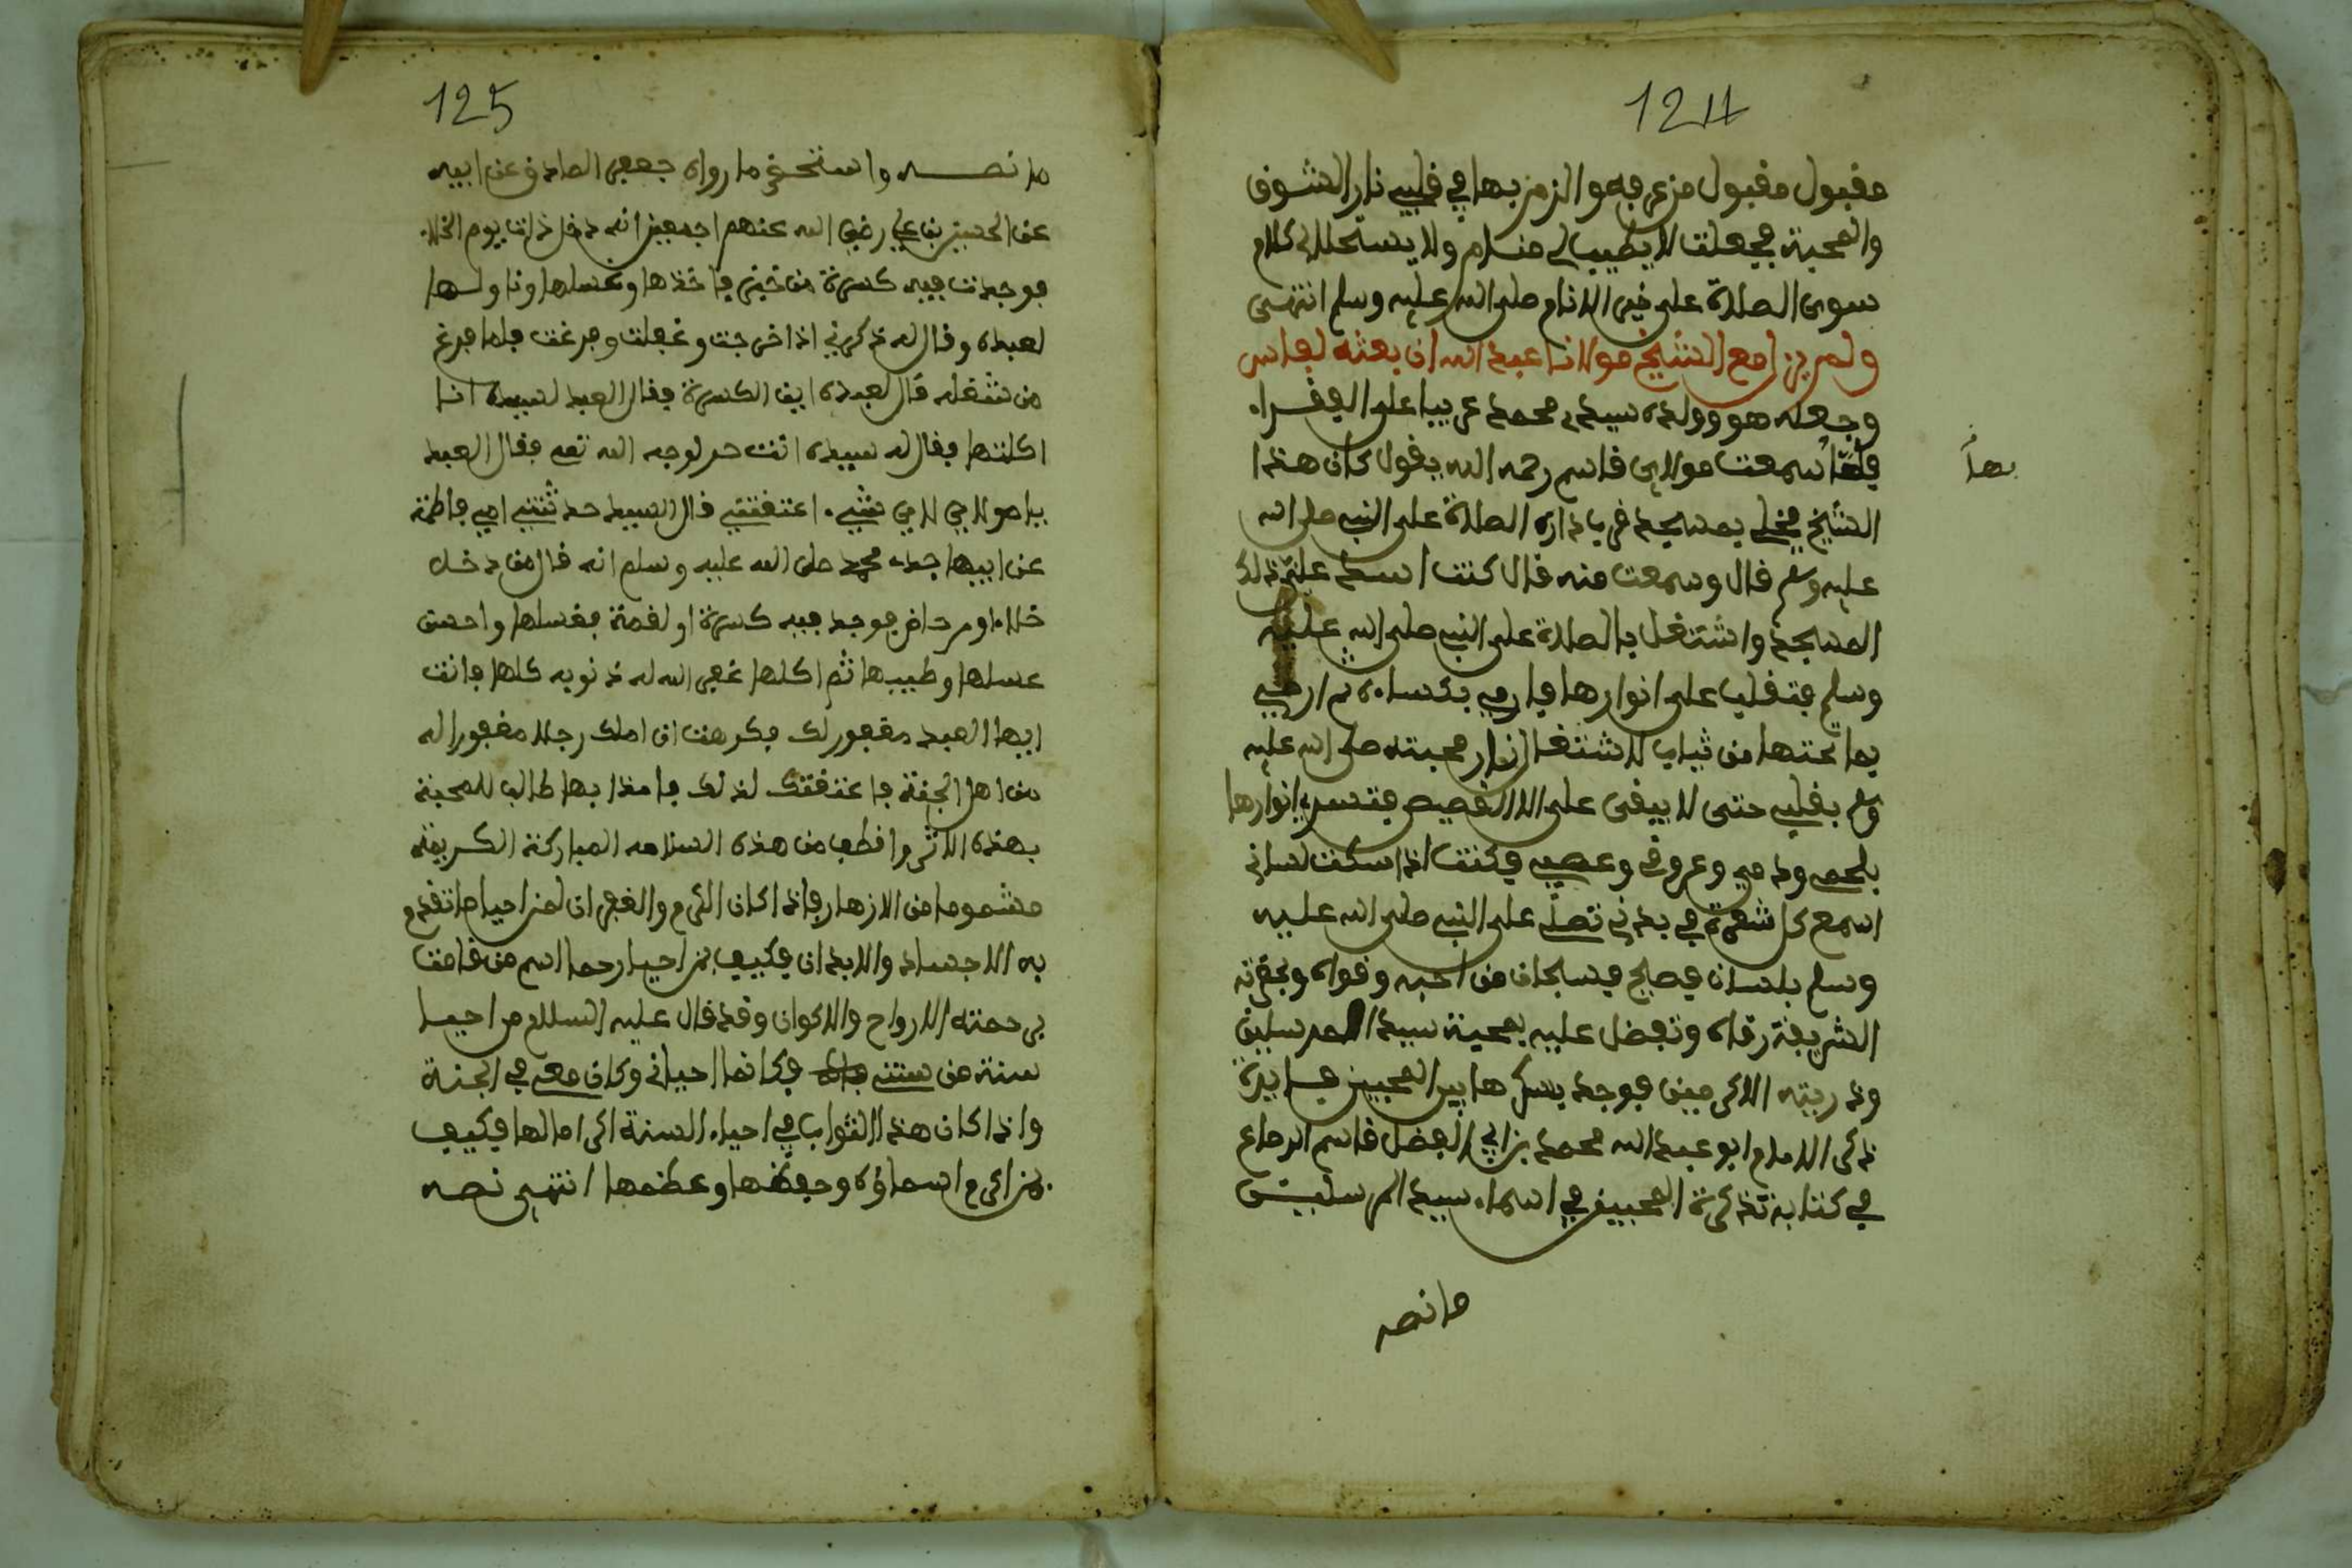 124
مقبول مقبول من عرفه والزمن بها في قلبي نار الشوق
والمحبة فجعلت لا يطيب لي منام ولا يستحلا لي كلام
سوى الصلاة على خير الانام صلى الله عليه وسلم انتهى
ولم يزل مع الشيخ مولانا عبد الله ان بعثه لفاس
وجعله هو وولده سيدي محمد عريبا على الفقراء
بها
سمعت مولاي قاسم رحمه الله يقول كان هذا
الشيخ بمسجد الصلاة على النبي صلى الله
عليه وسلم قال وسمعت منه قال كنت اسد علي ذلك
المسجد واشتغل بالصلاة على النبي صلى الله عليه
وسلم فتغلب على انوارها فارمي بكساي ثم ارمي
بما تحتها من ثياب لاشتغال نار محبته صلى الله عليه
وسلم بقلبي حتى لا يبقى على الا القميص فتسري انوارها
بلحمي ودمي وعروقي وعصبي فكنت اذا سكت لساني
اسمع كل شعرة في بدني تصلي على النبي صلى الله عليه
وسلم بلسان فصيح فسبحان من احبه وقواه وبحضرته
الشريفة رقاه وتفضل عليه بمحبة سيد المرسلين
وذريته الاكرمين فوجد بسكرها بين المحبين
ذكر الامام ابو عبد الله محمد بن ابي الفضل قاسم الرصاع
في كتابه تذكرة المحبين في اسماء سيد المرسلين
ما نصه
125
ما نصه واستحضر ما رواه جعفر الصادق عن ابيه
عن الحسين بن علي رضي الله عنهم اجمعين انه دخل ذات يوم الخلاء
فوجدت فيه كسرة من خبز فاخذها وغسلها وناولها
لعبده وقال له ذكرني اذا خرجت وغفلت وفرغت فلما فرغ
من شغله قال لعبده اين الكسرة فقال العبد لسيده انا
اكلتها فقال له سيده انت حر لوجه الله تعلى فقال العبد
يا مولاي لاي شيء اعتقتني قال السيد حدثتني امي فاطمة
عن ابيها جده محمد صلى الله عليه وسلم انه قال من دخل
خلاء او مرحاض فوجد فيه كسرة او لقمة فغسلها واحسن
غسلها وطيبها ثم اكلها غفر الله له ذنوبه كلها فانت
ايها العبد مغفور لك فكرهت ان املك رجلا مغفورا له
من اهل الجنة فاعتقتك لذلك فامتذا بها طالب للمحبة
بهذه الاثر واقطف من هذه السلامه المباركة الكريمة
مشموما من الازهار فاذا كان الكرم والغفران لمن احيا ما تقدم
به الاجساد والابدان فكيف بمن احيا رحما اسم من قامت
برحمته الارواح والاكوان وقد قال عليه السلام من احيا
سنة من سنتي فكانما احياني وكان معي في الجنة
واذا كان هذا الثواب في احياء السنة اكراما لها فكيف
بمن اكرم اسماؤه وحفظها وعظمها انتهى نصه